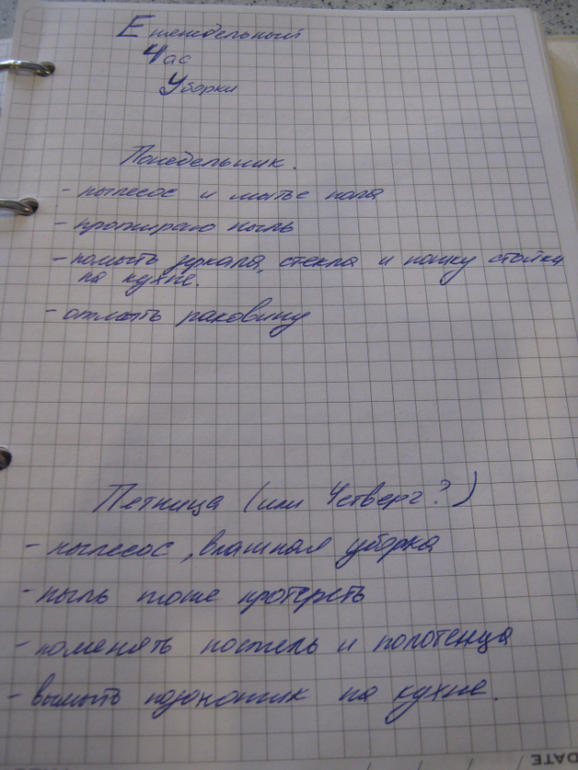 Еженедельный
Час
Уборки
Понедельник.
- пылесос и мытье пола
- протираю пыль
- помыть зеркала, стекла и ножку стойки
на кухне.
- отмыть раковину
Петница (или Четверг?)
- пылесос, влажная уборка
- пыль тоже протереть
- поменять постель и полотенца
- вымыть подоконник на кухне.
DATE